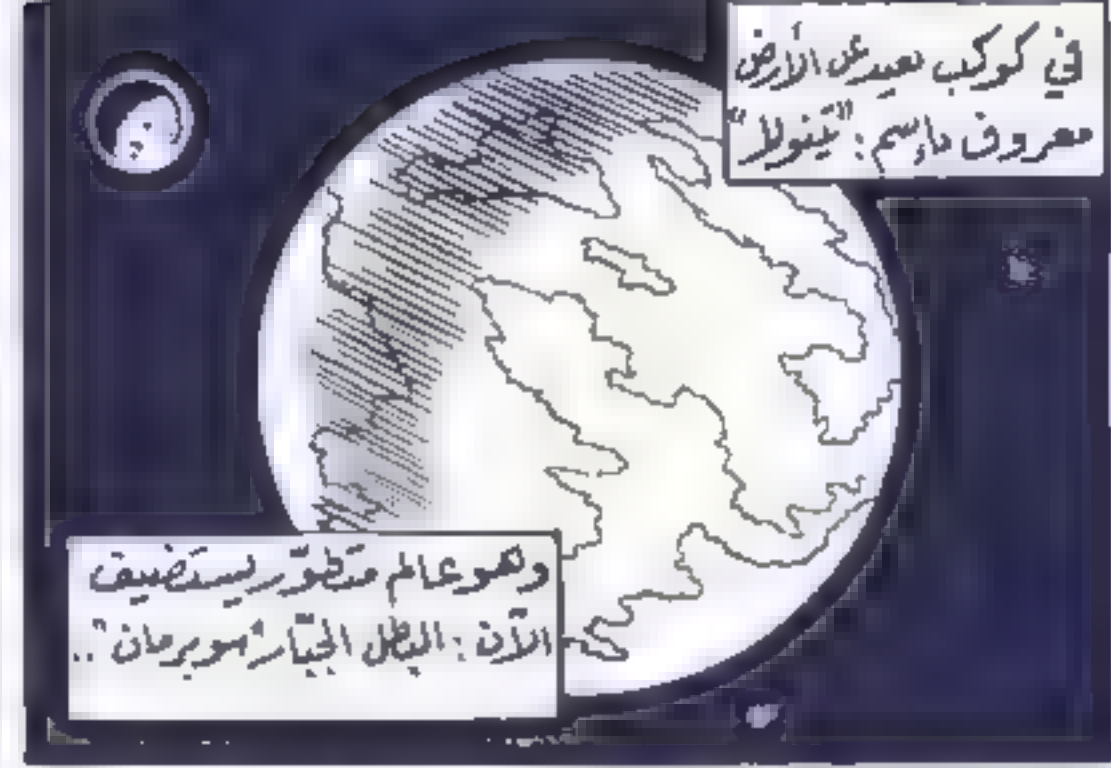 في كوكب بعيد عن الأرض
معروف بإسم: "تينولا"
وهو عالم متطوّر يستضيف
الآن: البطل الجبّار "سوبرمان"..